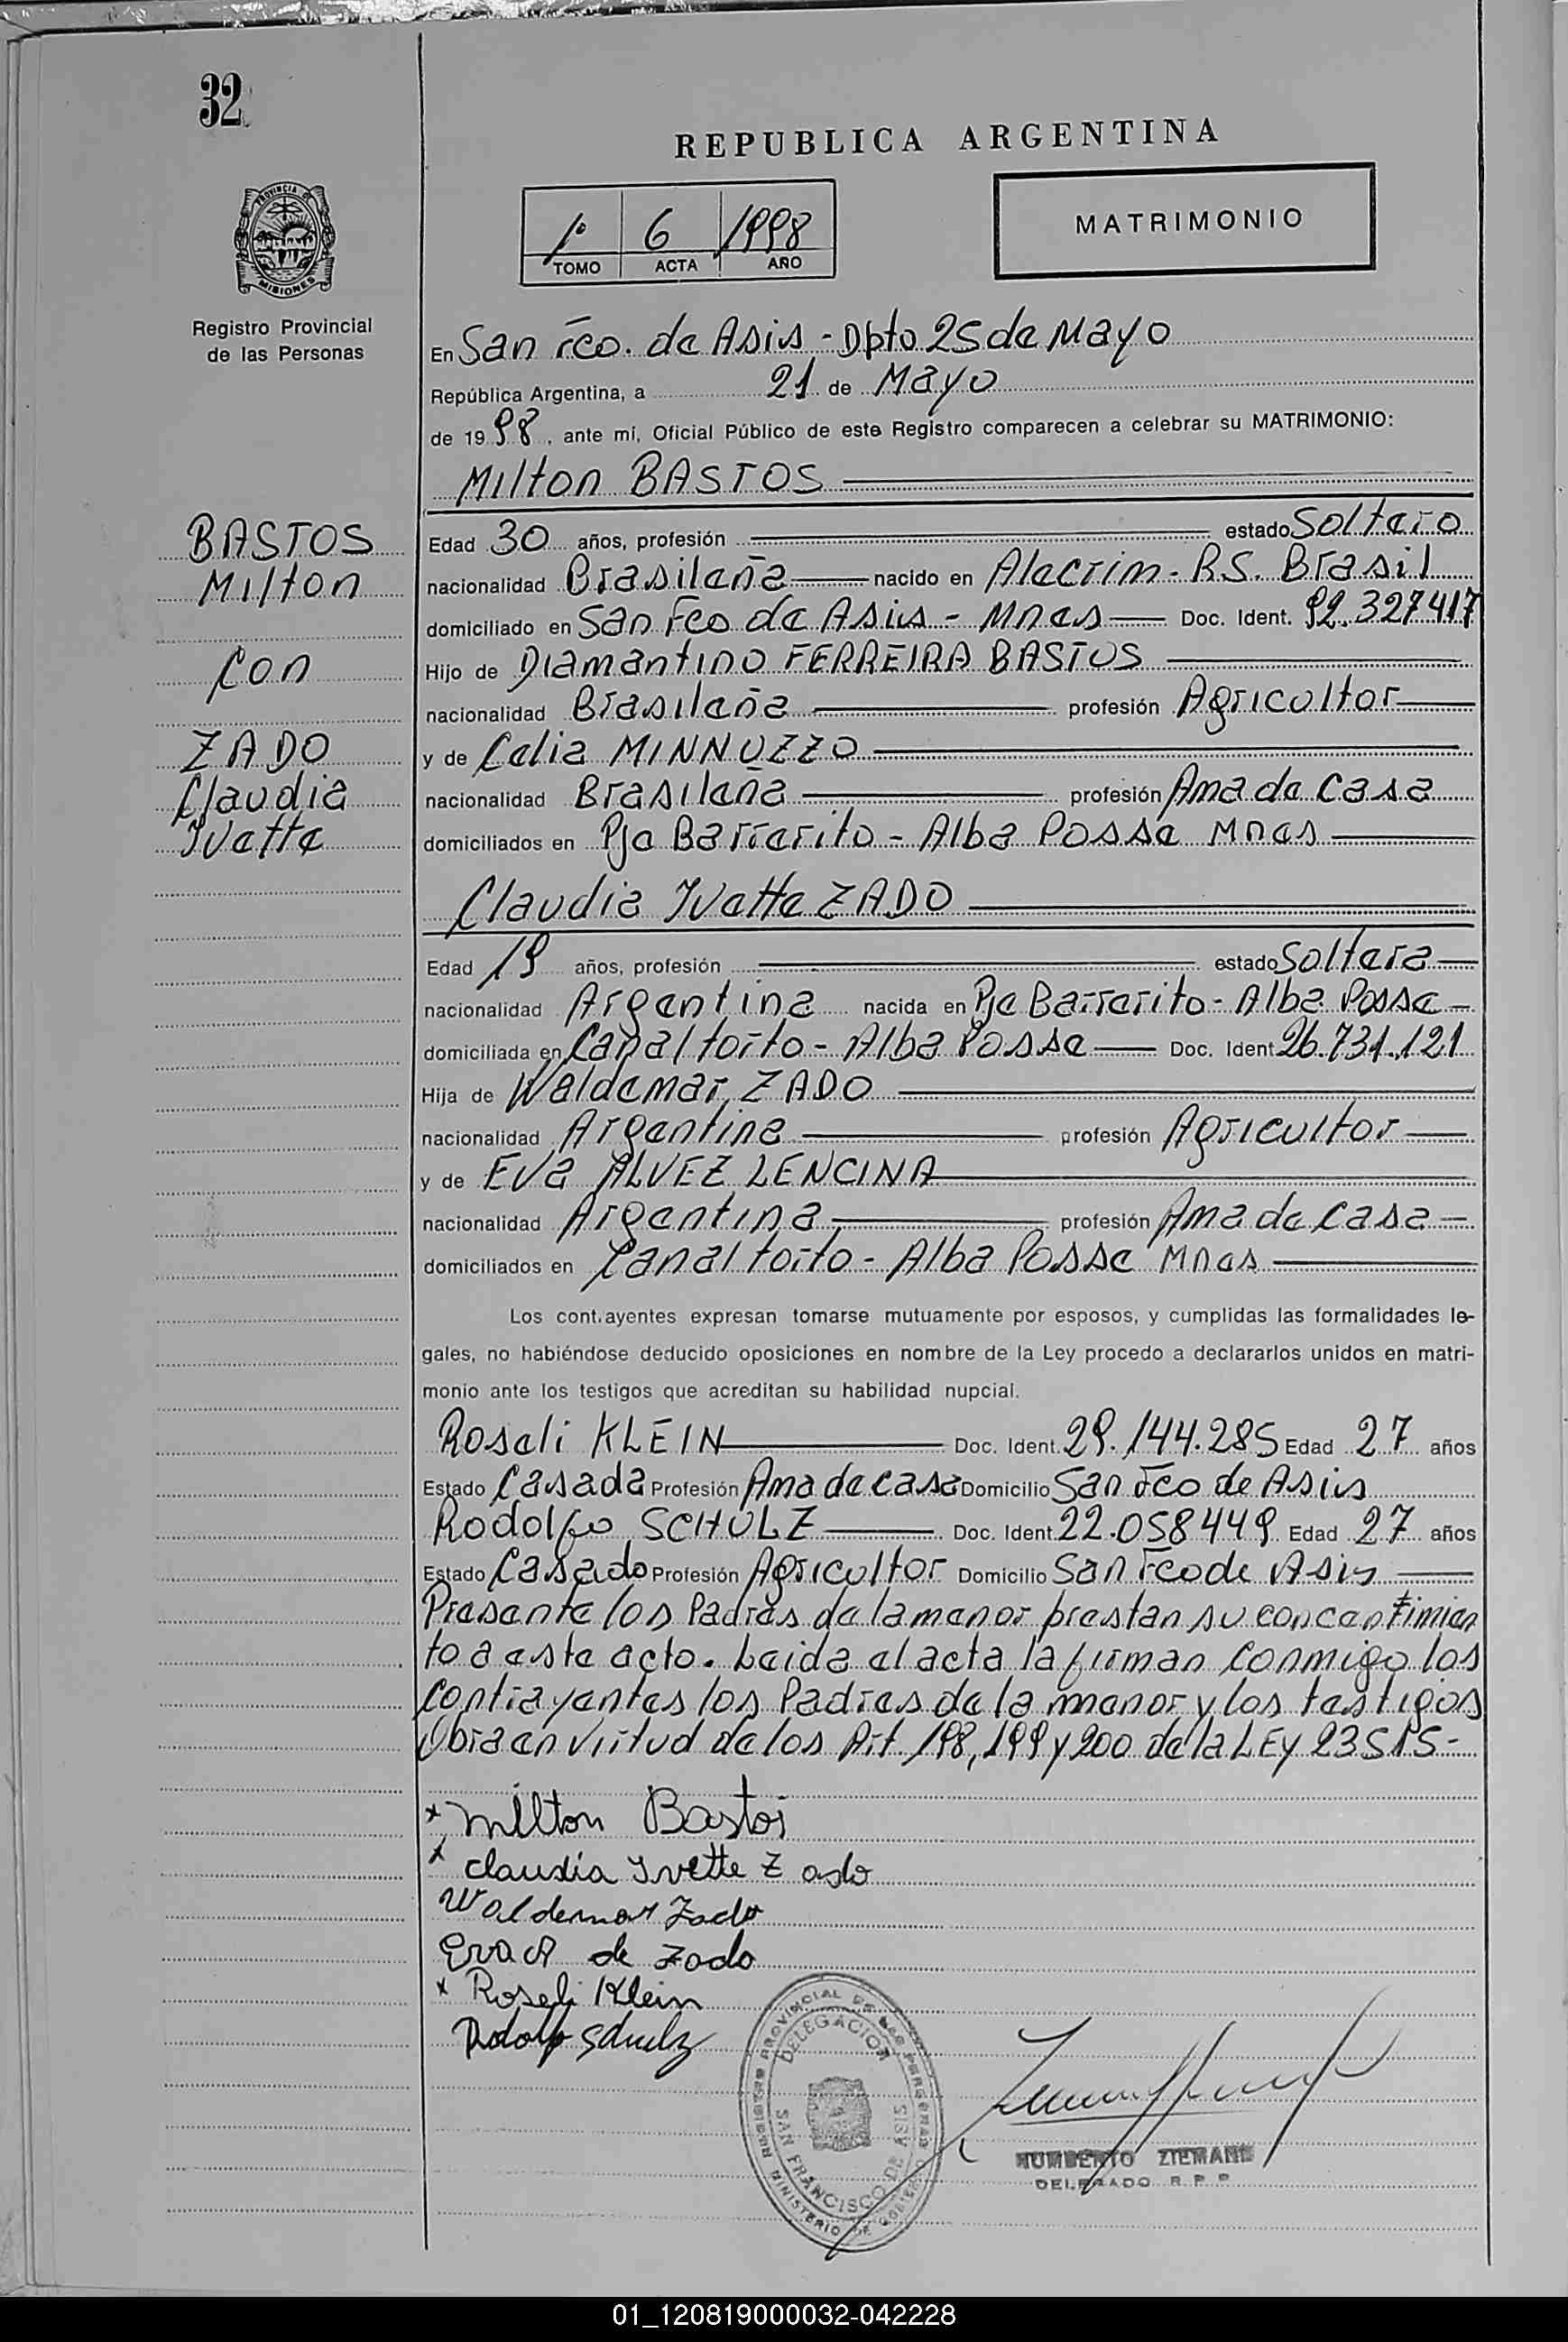 32
PROVINCIA DE
MISIONES
Registro Provincial
de las Personas
REPUBLICA ARGENTINA
1º 6 1998
TOMO ACTA AÑO
MATRIMONIO
En San Fco. de Asis - Dpto 25 de Mayo
República Argentina, a 21 de Mayo
de 1998, ante mí, Oficial Público de este Registro comparecen a celebrar su MATRIMONIO:
Milton BASTOS
BASTOS
Milton
con
ZADO
Claudia
Ivette
Edad 30 años, profesión estado Soltero
nacionalidad Brasileña nacido en Alecrim - RS. Brasil
domiciliado en San Fco de Asis - Mnes Doc. Ident. 92.327417
Hijo de Diamantino FERREIRA BASTOS
nacionalidad Brasileña profesión Agricultor
y de Celia MINNUZZO
nacionalidad Brasileña profesión Ama de casa
domiciliados en Pje Barrerito - Alba Posse Mnes
Claudia Ivette ZADO
Edad 19 años, profesión estado Soltera
nacionalidad Argentina nacida en Pje Barrerito - Alba Posse
domiciliada en Canal torto - Alba Posse Doc. Ident 26.731.121
Hija de Waldemar ZADO
nacionalidad Argentina profesión Agricultor
y de Eva ALVEZ LENCINA
nacionalidad Argentina profesión Ama de casa
domiciliados en Canal torto - Alba Posse Mnes
Los contrayentes expresan tomarse mutuamente por esposos, y cumplidas las formalidades le-
gales, no habiéndose deducido oposiciones en nombre de la Ley procedo a declararlos unidos en matri-
monio ante los testigos que acreditan su habilidad nupcial.
Roseli KLEIN Doc. Ident. 29.144.285 Edad 27 años
Estado Casada Profesión Ama de casa Domicilio San Fco de Asis
Rodolfo SCHULZ Doc. Ident. 22.058449 Edad 27 años
Estado Casado Profesión Agricultor Domicilio San Fco de Asis
Presente los Padres de la menor prestan su concentimien
to a este acto. Leida el acta la firman conmigo los
contrayentes los Padres de la menor y los testigos
Obra en virtud de los Art. 198, 199 y 200 de la LEy 23515-
x Milton Bastos
x claudia Ivette Zado
Waldemar Zado
Eva A de Zado
x Roseli Klein
Rodolfo Schulz
REGISTRO PROVINCIAL DE LAS PERSONAS
DELEGACION
SAN FRANCISCO DE ASIS
MINISTERIO DE GOBIERNO
HUMBERTO ZIEMANN
DELEGADO R.P.P.
01_120819000032-042228